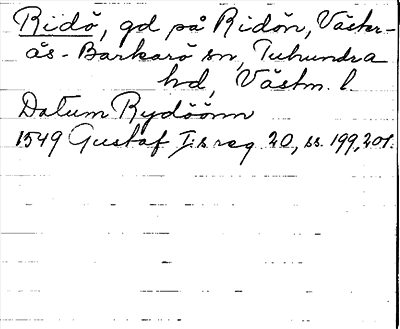 Ridö, gd på Ridön, Väster-
ås-Barkarö sn, Tuhundra
hd, Västm. l.
Datum Rydöönn
1549 Gustaf I:s reg. 20, ss. 199, 201.